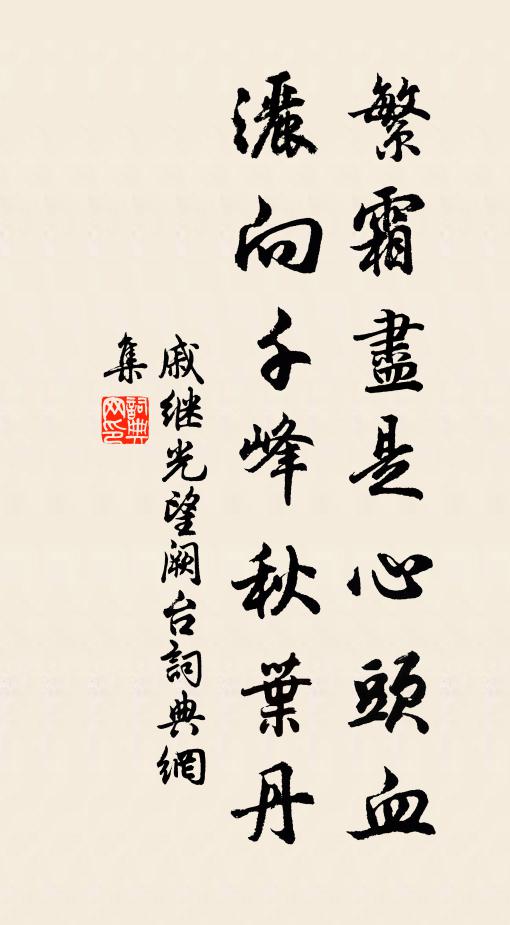 繁霜盡是心頭血
灑向千峰秋葉丹
戚继光望阙台詞典網
集
詞典网印